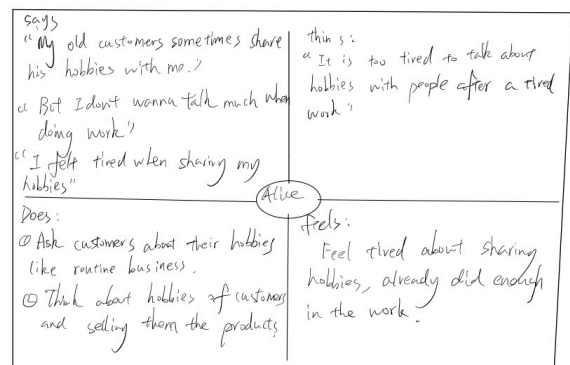 says
"My old customers sometimes share
his hobbies with me."
" But I dont wanna talk much when
doing work"
"I felt tired when sharing my
hobbies"
thin s:
" It is too tired to talk about
hobbies with people after a tired
work"
Alice
Does:
① Ask customers about their hobbies
like routine business.
② Think about hobbies of customers
and selling them the products
feels:
Feel tired about sharing
hobbies, already did enough
in the work.